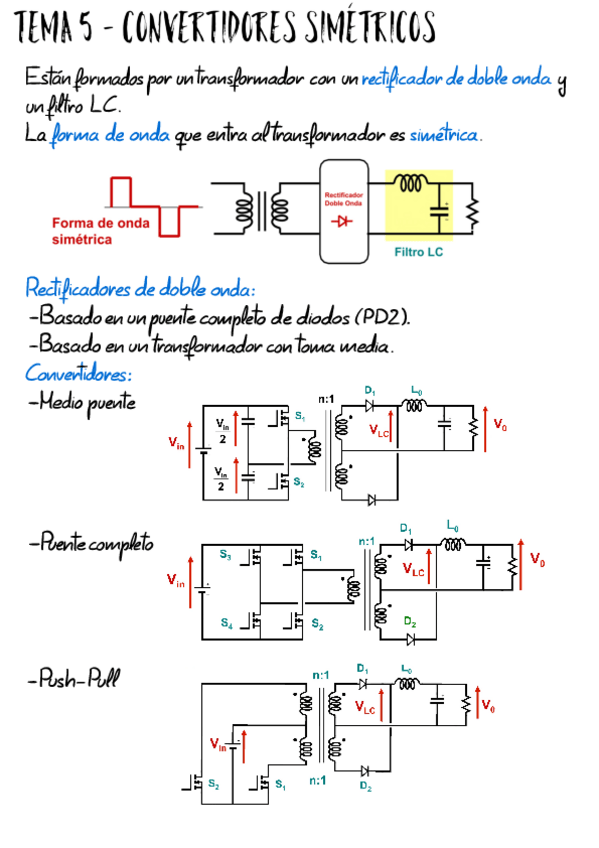 TEMA 5 - CONVERTIDORES SIMÉTRICOS
Están formados por un transformador con un rectificador de doble onda y
un filtro LC.
La forma de onda que entra al transformador es simétrica.
Rectificador
Doble Onda
Forma de onda
simétrica
Filtro LC
Rectificadores de doble onda:
-Basado en un puente completo de diodos (PD2).
-Basado en un transformador con toma media.
Convertidores:
-Medio puente
Vin
Vin/2
Vin/2
S1
S2
n:1
D1
L0
VLC
V0
-Puente completo
Vin
S3
S1
S4
S2
n:1
D1
L0
VLC
D2
V0
-Push-Pull
Vin
S2
S1
n:1
n:1
D1
L0
VLC
D2
V0